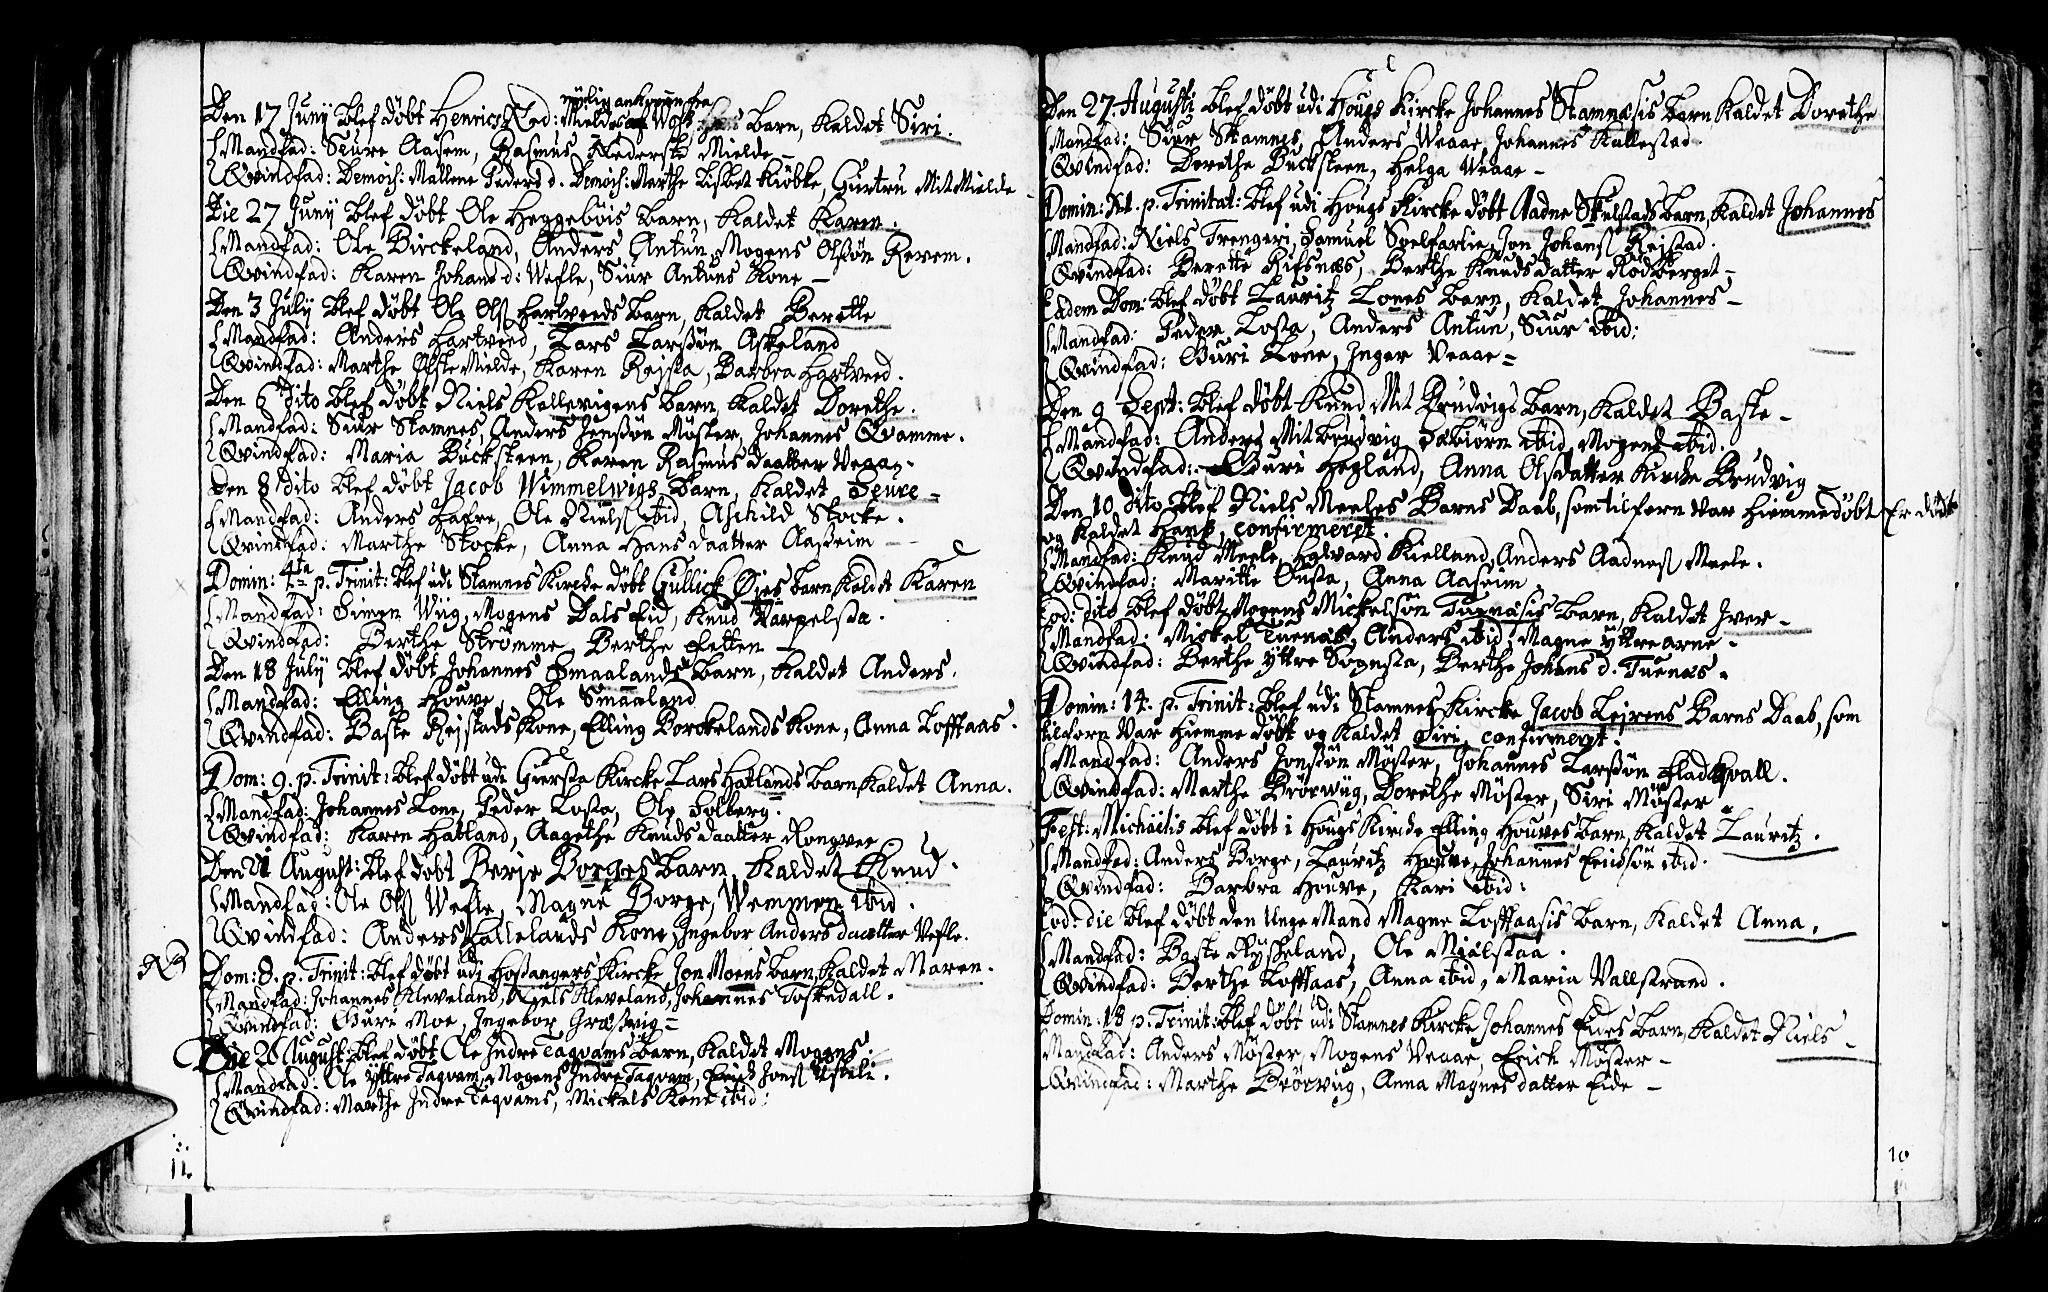 Den 17 Junij blef döbt Henrich Ned: Mieldes Barn, kaldet Siri.
Mandfad: Siure Aasem, Rasmus Nederste Mielde
Qvindfad: Demois: Mallene Peders d. Demois: Marthe Lisbet Kiöbke, Gurtru Mit Mielde
Die 27 Junij blef döbt Ole Heggeböis Barn, kaldet Karen.
Mandfad: Ole Birckeland, Anders Antun, Mogens Olssön Revem.
Qvindfad: Karen Johans d: Wefle, Siur Antuns Kone
Den 3 Julij blef döbt Ole Olss Hartveeds Barn, kaldet Berette
Mandfad: Anders Hartveed, Lars Larssön Askeland
Qvindfad: Marthe Öfste Mielde, Karen Rejsta, Barbra Hartveed.
Den 6 dito blef döbt Niels Kallevigens Barn, kaldet Dorethe.
Mandfad: Siur Stamnes, Anders Jenssön Möster, Johannes Qvamme.
Qvindfad: Maria Bucksteen, Karen Rasmus daatter Veaae.
Den 8 dito blef döbt Jacob Wimmelwigs Barn, kaldet Seure
Mandfad: Anders Hafre, Ole Nielss ibid, Aschild Stocke.
Qvindfad: Marthe Stocke, Anna Hans daatter Aasheim
Domin: 4ta p. Trinit: blef udi Stamnes Kircke döbt Gullick Öies Barn kaldet Karen
Mandfad: Simen Wiig, Mogens Dals Eid, Knud Varpelsta.
Qvindfad: Berthe Strömme, Berthe Fetten
Den 18 Julij blef döbt Johannes Smaalands Barn, kaldet Anders.
Mandfad: Elling Houve, Ole Smaaland
Qvindfad: Baste Rejstads Kone, Elling Borckelands Kone, Anna Lofftaas.
Dom: 9. p. Trinit: blef döbt udi Giersta Kircke Lars Hatlands Barn kaldet Anna.
Mandfad: Johannes Lone, Peder Losta, Ole Solberg.
Qvindfad: Karen Hatland, Aagethe Knuds daatter Rongvee
Den 21 August: blef döbt Berje Borges Barn, kaldet Knud.
Mandfad: Ole Olss Wefle, Magne Borge, Wemmen ibid.
Qvindfad: Anders Hallelands Kone, Ingebor Anders daatter Vefle.
NB
Dom: 8. p. Trinit: blef döbt udi Hosangers Kircke Jon Moens Barn kaldet Maren.
Mandfad: Johannes Kleveland, Niels Kleveland, Johannes Toskedall.
Qvindfad: Guri Moe, Ingebor
Die 26 August: blef döbt Ole Indre Taqvams Barn, kaldet Mogens.
Mandfad: Ole Yttre Taqvam, Mogens Indre Taqvam, Erick Jonss
Qvindfad: Marthe Indre Taqvams, Mickels Kone ibid:
11
Den 27 Augusti blef döbt udi Hougs Kircke Johannes Stamnæsis Barn kaldet Dorethe
Mandfad: Siur Stamnes, Anders Veaae, Johannes Kallestad
Qvindfad: Dorethe Bucksteen, Helga Veaae
Domin: XI. p. Trinitat: blef udi Hougs Kircke döbt Aadne Skulstads Barn, kaldet Johannes
Mandfad: Niels Trengeri, Samuel Soelfarlie, Jon Johanss Rejstad.
Qvindfad: Berette Rifsnæs, Berthe Knudsdatter Rödberget
Eadem Dom: blef döbt Lauritz Lones Barn, kaldet Johannes
Mandfad: Peder Losta, Anders Antun, Siur ibid:
Qvindfad: Guri Lone, Inger Veaae
Den 9 Sept: blef döbt Knud Mit Brudvigs Barn, kaldet Baste
Mandfad: Anders Mit Brudvig, Aabiörn ibid, Mogens ibid.
Qvindfad: Guri Hegland, Anna Olsdatter Kircke Brudvig
Den 10 dito blef Niels Meeles Barns Daab, som tilforn var hiemmedöbt Er död
og kaldet Hans, confirmeret.
Mandfad: Knud Meele, Halvard Kielland, Anders Aadness Meele.
Qvindfad: Maritte Onsta, Anna Aasheim
Eod: dito blef döbt Mogens Mickelsön Tuenæsis Barn, kaldet Iver
Mandfad: Mickel Tuenæs, Anders ibid, Magne Yttrearne.
Qvindfad: Berthe Yttre Sognsta, Berthe Johans d. Tuenæs.
Domin: 14. p. Trinit: blef udi Stamnes Kircke Jacob Leirens Barns Daab, som
tilforn var hiemme döbt og kaldet Siri, confirmeret.
Mandfad: Anders Jonssön Möster, Johannes Larssön Fladqvall.
Qvindfad: Marthe Brörviig, Dorethe Möster, Siri Möster
Fest: Michaelis blef döbt i Hougs Kircke Elling Houves Barn kaldet Lauritz.
Mandfad: Anders Borge, Lauritz Houve, Johannes Erickssön ibid.
Qvindfad: Barbra Houve, Kari ibid:
Eod: die blef döbt den Unge Mand Magne Lofftaasis Barn, kaldet Anna.
Mandfad: Baste Ryskeland, Ole Mielstaa.
Qvindfad: Berthe Lofftaas, Anna ibid, Maria Vallstrand.
Domin: 18 p. Trinit: blef döbt udi Stamnes Kircke Johannes Eides Barn, kaldet Niels
Mandfad: Anders Möster, Mogens Veaae, Erick Möster
Qvindfad: Marthe Brörviig, Anna Magnesdatter Eide
10